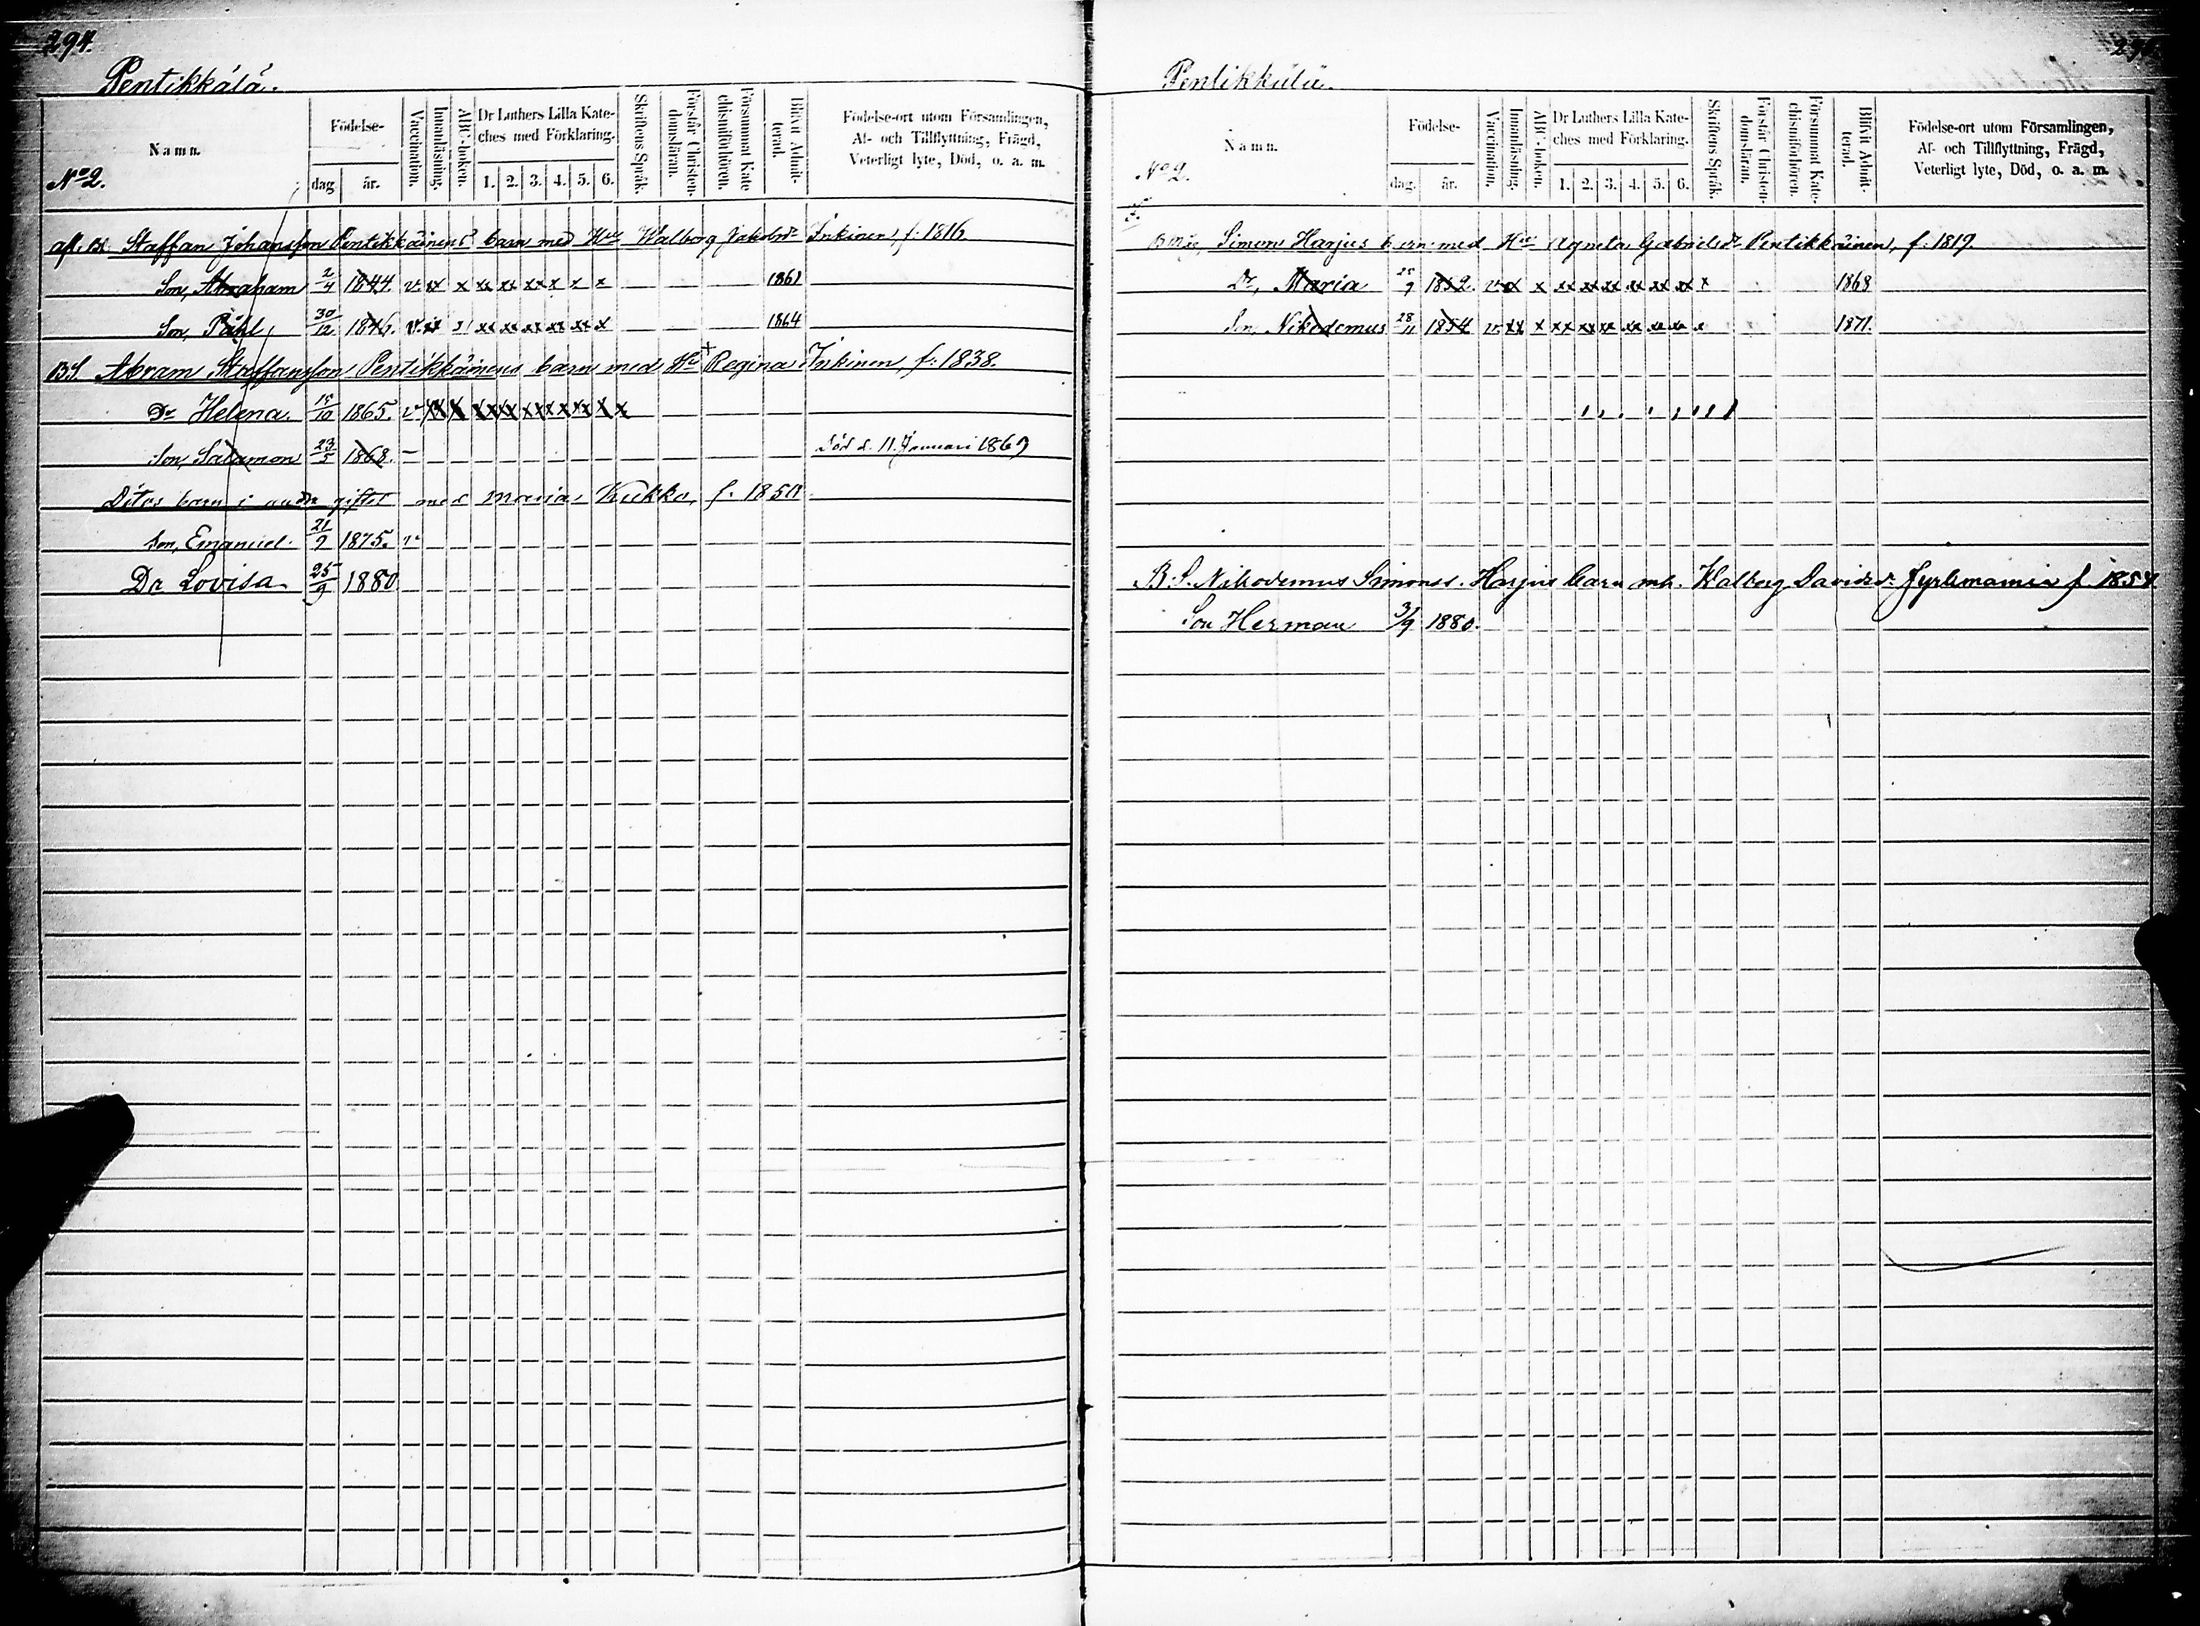 294.
Pentikkälä.
Namn.
No 2.
Födelse-
dag
år.
Vaccination.
Innanläsning.
ABC-boken.
Dr Luthers Lilla Kate-
ches med Förklaring.
1. 2. 3. 4. 5. 6.
Skriftens Språk.
Förstår Christen-
domsläran.
Försummat Kate
chismiförhören.
Blifvit Admit-
terad.
Födelse-ort utom Församlingen,
Af- och Tillflyttning, Frägd,
Veterligt lyte, Död, o. a. m.
afl. Staffan Johansson Pentikkäinens barn med Hu Walborg Jakobsdr Inkinen, f. 1816
Son, Abraham 2/4 1844. v. xx x xx xx xx x x x 1861
Son, Påhl, 30/12 1846. v. xx xx xx xx xx x 1864
BS. Abram Staffansson Pentikkäinens barn med Hu + Regina Inkinen, f. 1838.
Dr Helena 15/10 1865. v
Son, Salamon 23/5 1868. – Död d. 11 Januari 1869
Ditos barn i andra giftet med Maria Kukko, f. 1850
Son, Emanuel. 21/9 1875. v
Dr Lovisa 25/9 1880.
Pentikkälä.
Namn.
No 2.
Födelse-
dag.
år.
Vaccination.
Innanläsning.
ABC-boken.
Dr Luthers Lilla Kate-
ches med Förklaring.
1. 2. 3. 4. 5. 6.
Skriftens Språk.
Förstår Christen-
domsläran.
Försummat Kate-
chismiförhören.
Blifvit Admit-
terad.
Födelse-ort utom Församlingen,
Af- och Tillflyttning, Frägd,
Veterligt lyte, Död, o. a. m.
Simon Harjus barn med Hu Agneta Gabrielsdr Pentikkäinen, f. 1819
Dr, Maria 1852 v xx x xx xx xx xx xx xx x 1868
Son, Nikodemus 28/11 1854 v. xx x xx xx xx xx xx xx x 1871.
B. S. Nikodemus Simonss. Harjus barn mh. Walborg Davidsdr f. 1854
Son Herman 3/9 1880.